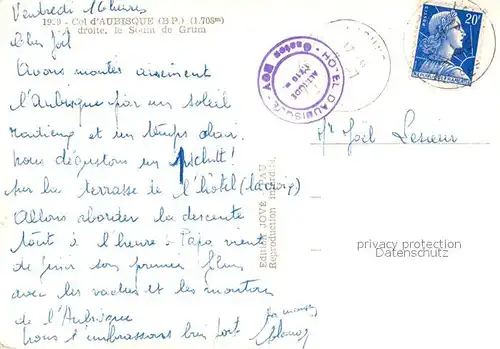 Vendredi 16 heures
19.9 - Col d'AUBISQUE (B.P.) (1.708m)
A droite, le Soum de Grum
Cher Joël
Avons montés aisément
l'Aubisque par un soleil
radieux et un temps chaud.
nous dégustons un pschitt!
sur la terrasse de l'hôtel (la croix)
Allons aborder la descente
tout à l'heure. Papa vient
de finir son premier film
avec les vaches et les moutons
de l'Aubisque
nous t'embrassons bien fort
HÔTEL D'AUBISQUE
ALTITUDE
1710 m
20F
Mr Joël Lesieur
Edition JOVÉ PAU
Reproduction interdite
privacy protection
Datenschutz